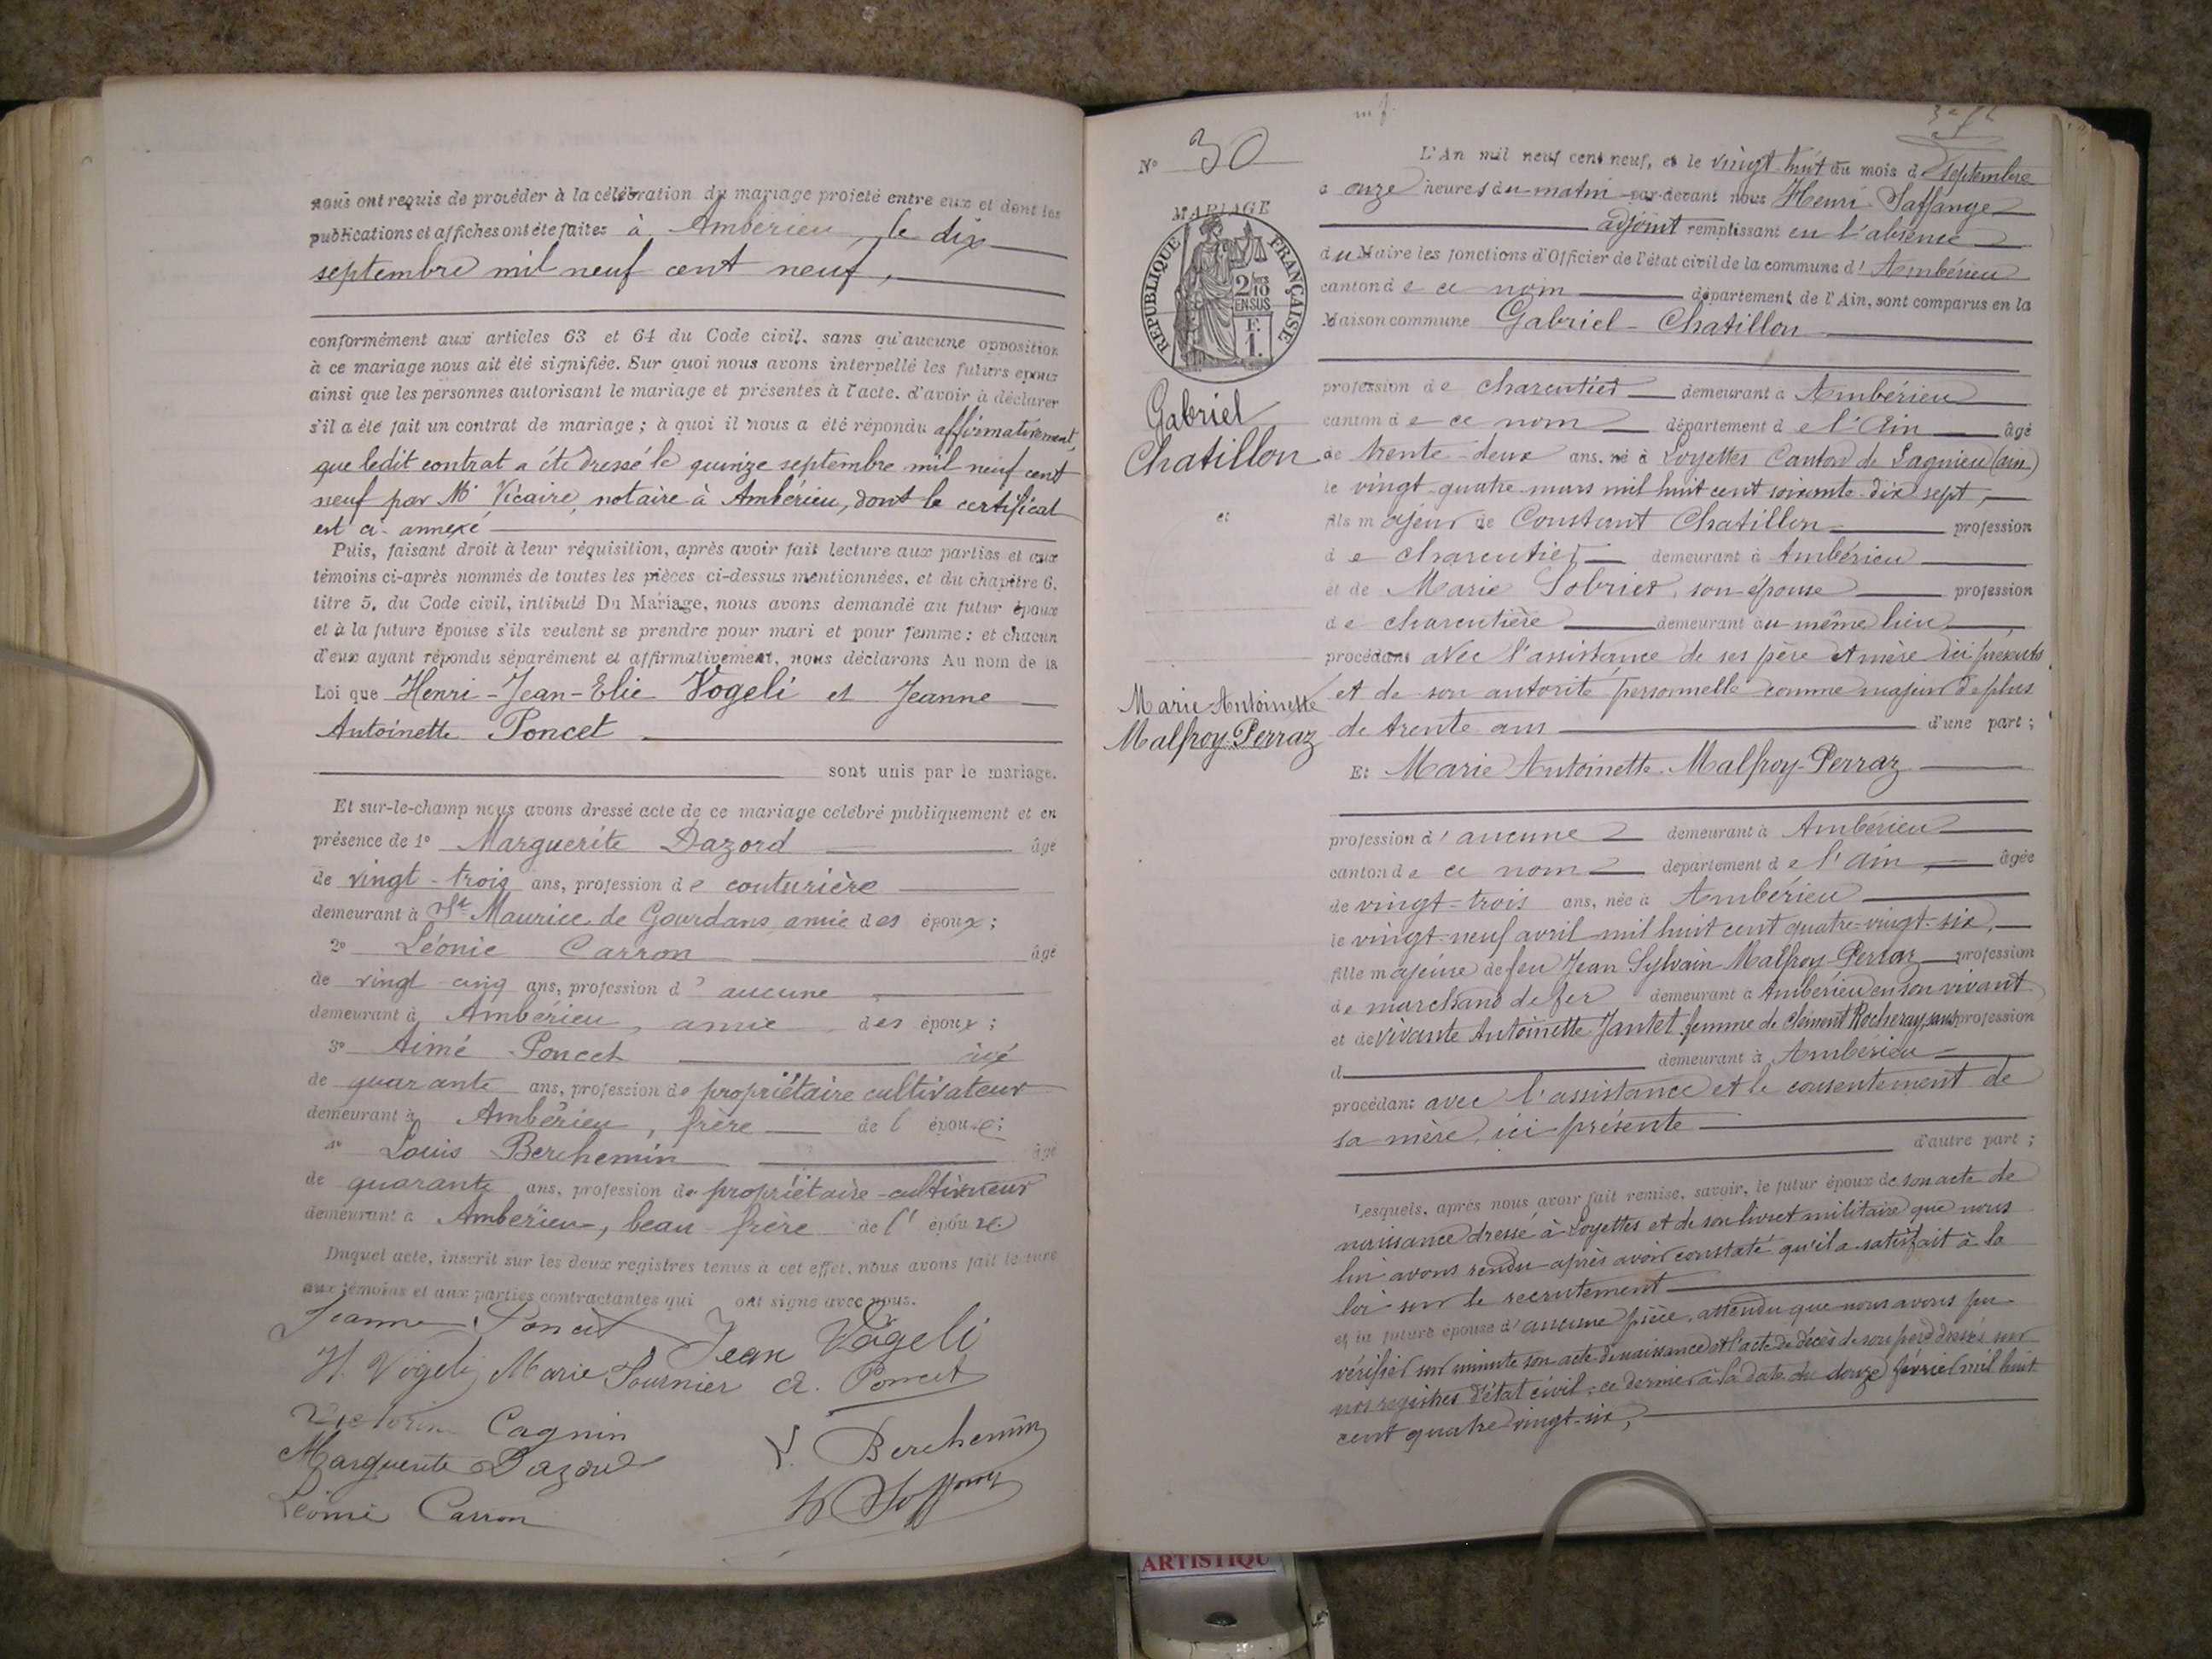 nous ont requis de procéder à la célébration du mariage projeté entre eux et dont les
publications et affiches ont été faites à Ambérieu, le dix
septembre mil neuf cent neuf,
conformément aux articles 63 et 64 du Code civil, sans qu'aucune opposition
à ce mariage nous ait été signifiée. Sur quoi nous avons interpellé les futurs epoux
ainsi que les personnes autorisant le mariage et présentes à l'acte, d'avoir à déclarer
s'il a été fait un contrat de mariage ; à quoi il nous a été répondu affirmativement,
que ledit contrat a été dressé le quinze septembre mil neuf cent
neuf par Me Vicaire, notaire à Ambérieu, dont le certificat
est ci-annexé
Puis, faisant droit à leur réquisition, après avoir fait lecture aux parties et aux
témoins ci-après nommés de toutes les pièces ci-dessus mentionnées, et du chapitre 6,
titre 5, du Code civil, intitulé Du Mariage, nous avons demandé au futur époux
et à la future épouse s'ils veulent se prendre pour mari et pour femme : et chacun
d'eux ayant répondu séparément et affirmativement, nous déclarons Au nom de la
Loi que Henri-Jean-Elie Vogeli et Jeanne
Antoinette Poncet
sont unis par le mariage.
Et sur-le-champ nous avons dressé acte de ce mariage célébré publiquement et en
présence de 1° Marguerite Dazord âgé
de vingt-trois ans, profession de couturière
demeurant à St Maurice de Gourdans amie des époux ;
2° Léonie Carron âgé
de vingt cinq ans, profession d'aucune
demeurant à Ambérieu, amie des époux ;
3° Aimé Poncet âgé
de quarante ans, profession de propriétaire cultivateur
demeurant à Ambérieu, frère de l'épouse ;
4° Louis Berchemin âgé
de quarante ans, profession de propriétaire-cultivateur
demeurant à Ambérieu, beau-frère de l'épouse
Duquel acte, inscrit sur les deux registres tenus à cet effet, nous avons fait lecture
aux témoins et aux parties contractantes qui ont signé avec nous.
Jeanne Poncet Jean Vogeli
H. Vogeli Marie Fournier A. Poncet
Victorine Cagnin
L. Berchemin
Marguerite Dazord
Léonie Carron
N° 30
MARIAGE
RÉPUBLIQUE FRANÇAISE
2/10
EN SUS
F.
1.
Gabriel
Chatillon
et
Marie Antoinette
Malfroy-Perraz
L'An mil neuf cent neuf, et le vingt huit du mois de septembre
à onze heures du matin par-devant nous Henri Saffange
adjoint remplissant en l'absence
du Maire les fonctions d'Officier de l'état civil de la commune d'Ambérieu
canton de ce nom département de l'Ain, sont comparus en la
Maison commune Gabriel Chatillon
profession de charcutier demeurant à Ambérieu
canton de ce nom département de l'Ain âgé
de trente-deux ans, né à Loyettes Canton de Lagnieu (ain)
le vingt-quatre mars mil huit cent soixante-dix sept,
fils majeur de Constant Chatillon profession
de charcutier demeurant à Ambérieu
et de Marie Sobrier, son épouse profession
de charcutière demeurant au même lieu
procédant avec l'assistance de ses père et mère ici présents
et de son autorité personnelle comme majeur de plus
de trente ans d'une part ;
Et Marie Antoinette Malfroy-Perraz
profession d'aucune demeurant à Ambérieu
canton de ce nom département de l'ain âgée
de vingt-trois ans, née à Ambérieu
le vingt-neuf avril mil huit cent quatre-vingt-six,
fille majeure de feu Jean Sylvain Malfroy Perraz profession
de marchand de fer demeurant à Ambérieu en son vivant
et de vivante Antoinette Jantet femme de Clément Rocheray, sans profession
d demeurant à Ambérieu
procédant avec l'assistance et le consentement de
sa mère, ici présente
d'autre part ;
Lesquels, après nous avoir fait remise, savoir, le futur époux de son acte de
naissance dressé à Loyettes et de son livret militaire que nous
lui avons rendu après avoir constaté qu'il a satisfait à la
loi sur le recrutement
et la future épouse d'aucune pièce, attendu que nous avons pu
vérifier sur minute son acte de naissance et l'acte de décès de son père dressés sur
nos registres d'état civil, ce dernier à la date du douze février mil huit
cent quatre vingt-six,
ARTISTIQU